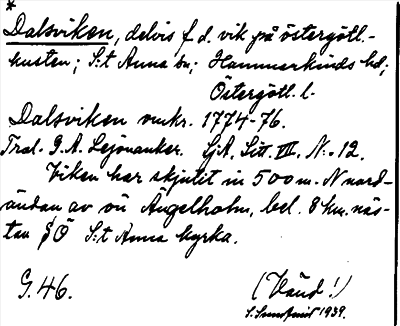 *
Dalsviken, delvis f.d. vik på östergötl.-
kusten; S:t Anna sn; Hammarkinds hd;
Östergötl. l.
Dalsviken omkr. 1774-76.
Tral. G.A. Lejonanker. GjA, Litt. VII, N:o 12.
Viken har skjutit in 500 m. N nord-
ändan av ön Ängelholm, bel. 8 km. näs-
tan SÖ S:t Anna kyrka.
G. 46.
(Vänd!)
S. Sundquist 1939.